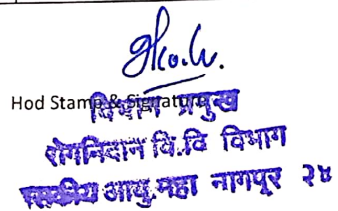 Hod Stamp & Signature
विभाग प्रमुख
रोगनिदान वि.वि विभाग
शासकीय आयु.महा नागपूर २४